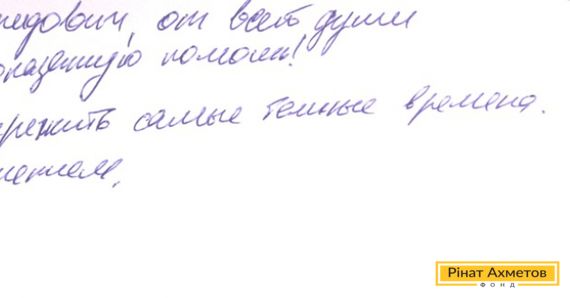 едович, от всей души
оказанную помощь!
режить самые темные времена.
ением.
Рінат Ахметов
ФОНД